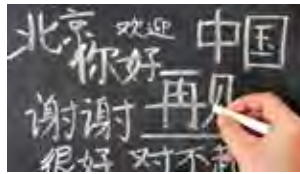 北京 欢迎 中国
你好
谢谢 再见
很好 对不起